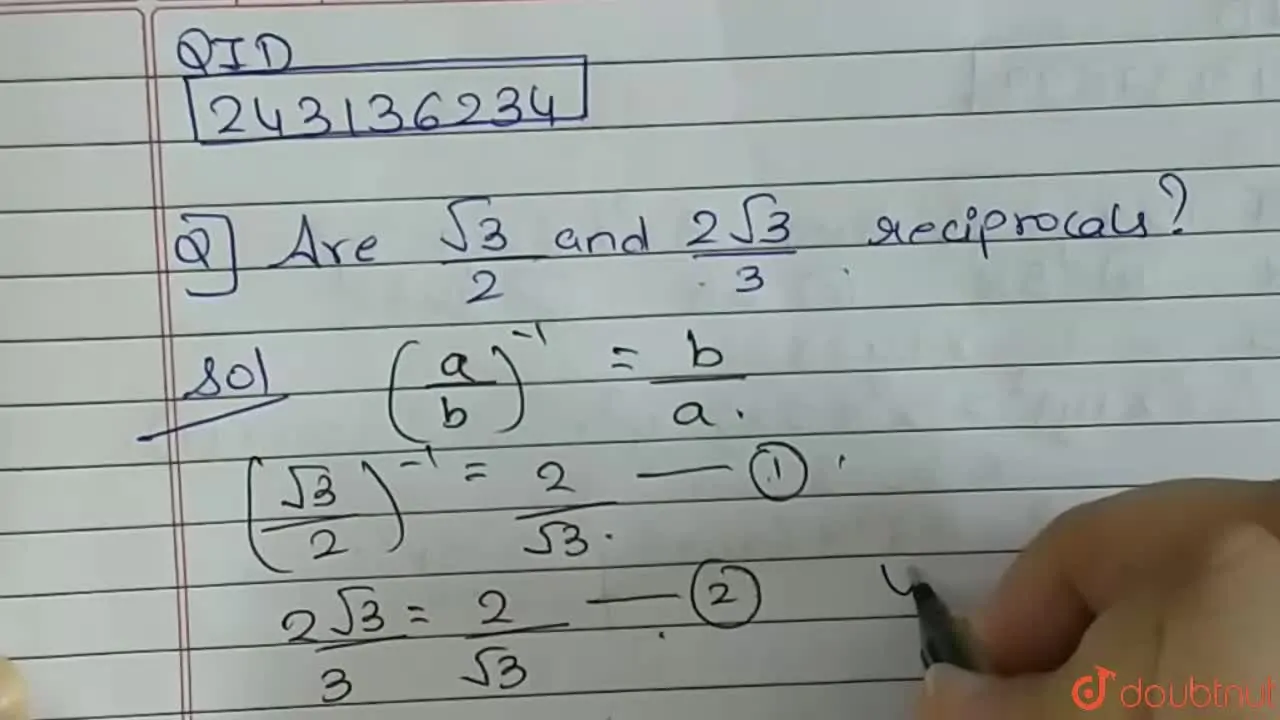 QID
243136234
Q] Are √3/2 and 2√3/3 reciprocals?
Sol (a/b)⁻¹ = b/a.
(√3/2)⁻¹ = 2/√3. — ①
2√3/3 = 2/√3 — ②
doubtnut